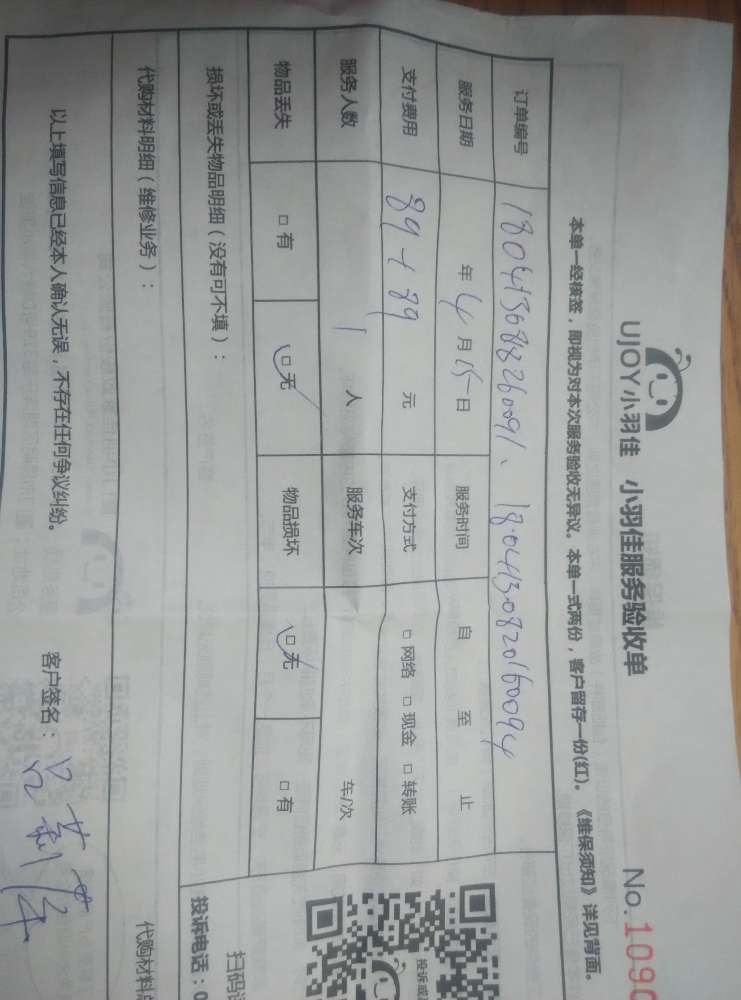 UJOY小羽佳 小羽佳服务验收单 No. 1090
本单一经核签，即视为对本次服务验收无异议。本单一式两份，客户留存一份(红)。《维保须知》详见背面。
订单编号
服务日期 年 4 月 15 日 服务时间 自 至 止
支付费用 89+89 元 支付方式 □ 网络 □ 现金 □ 转账
服务人数 1 人 服务车次 车/次
物品丢失 □ 有 □ 无 物品损坏 □ 无 □ 有
损坏或丢失物品明细（没有可不填）：
代购材料明细（维修业务）： 代购材料
以上填写信息已经本人确认无误，不存在任何争议纠纷。 客户签名：
投诉或
扫码
投诉电话：0